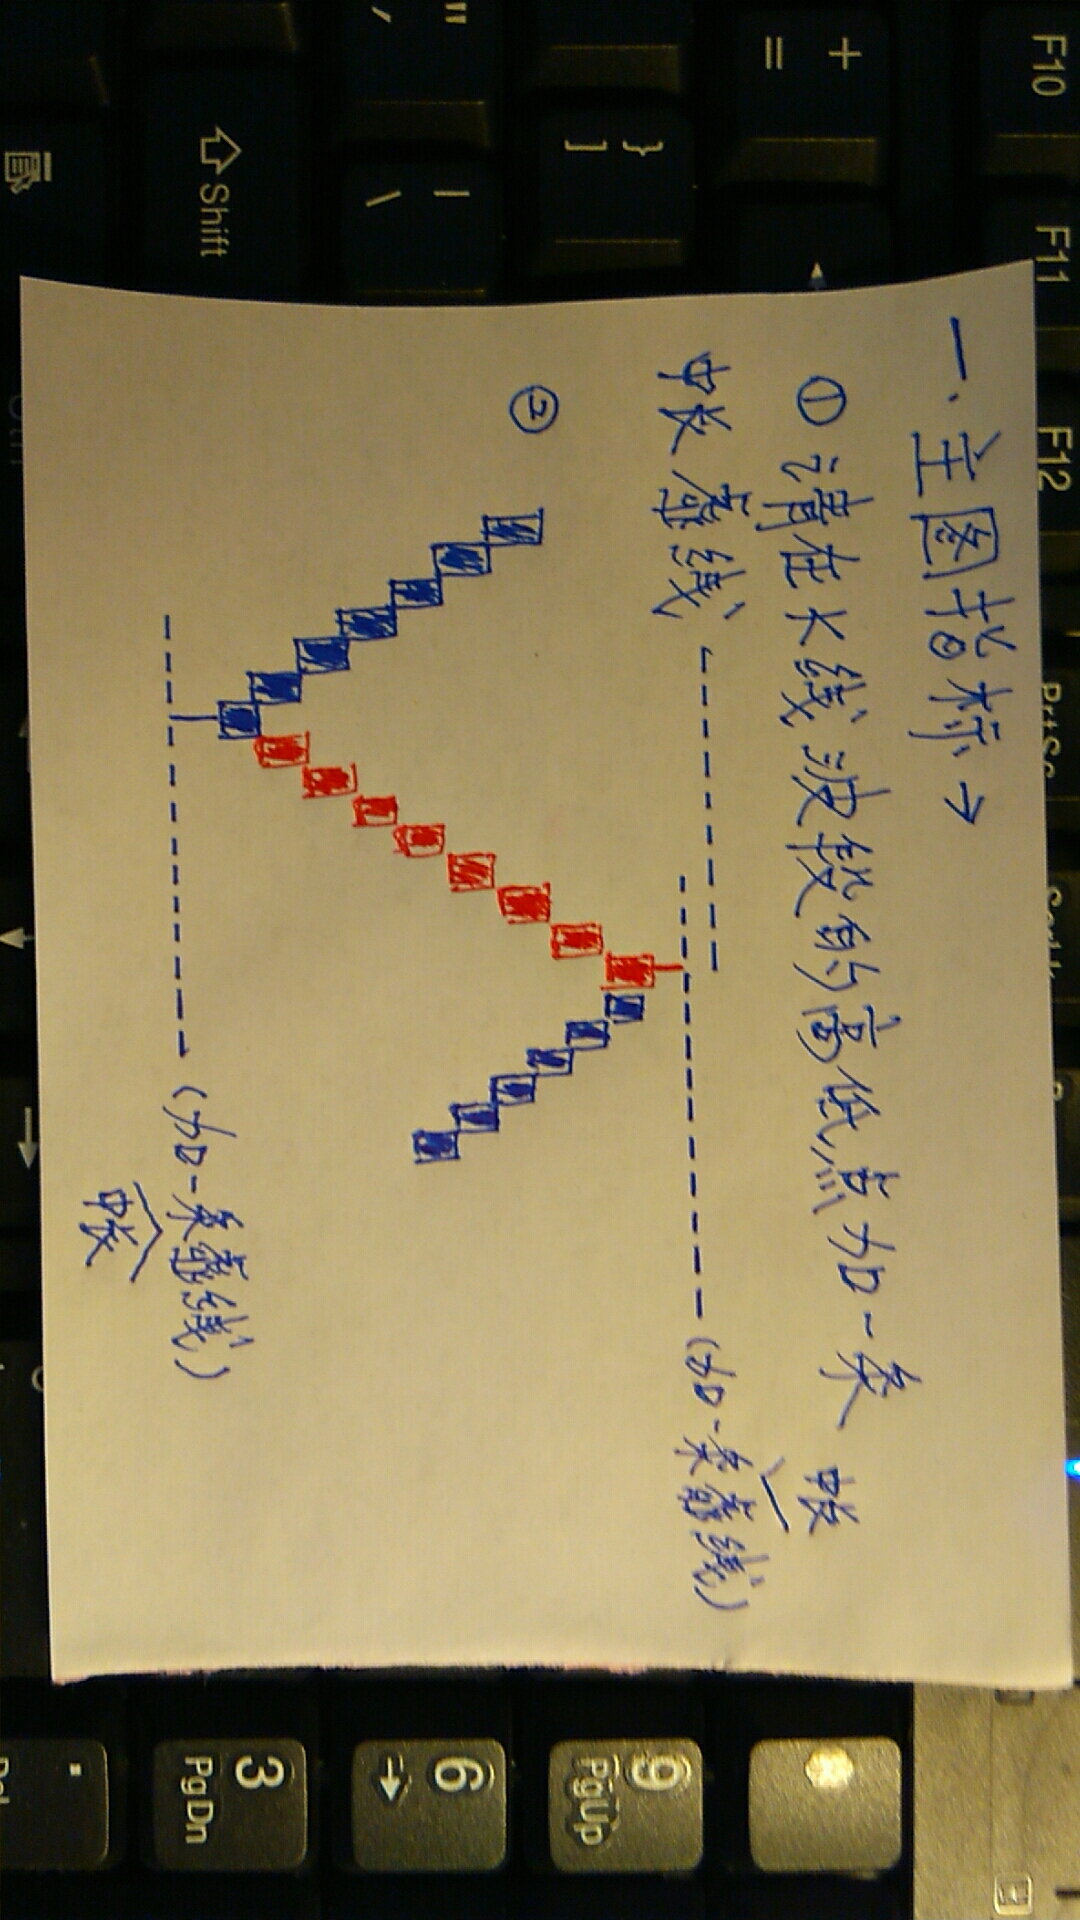 一.主图指标→
①请在大线波段的高低点加一条
中长虚线
中长
②
(加一条虚线)
(加一条虚线)
中长
F10
F11
F12
PrtSc
+
=
}
]
"
'
|
\
Shift
9
PgUp
6
3
PgDn
.